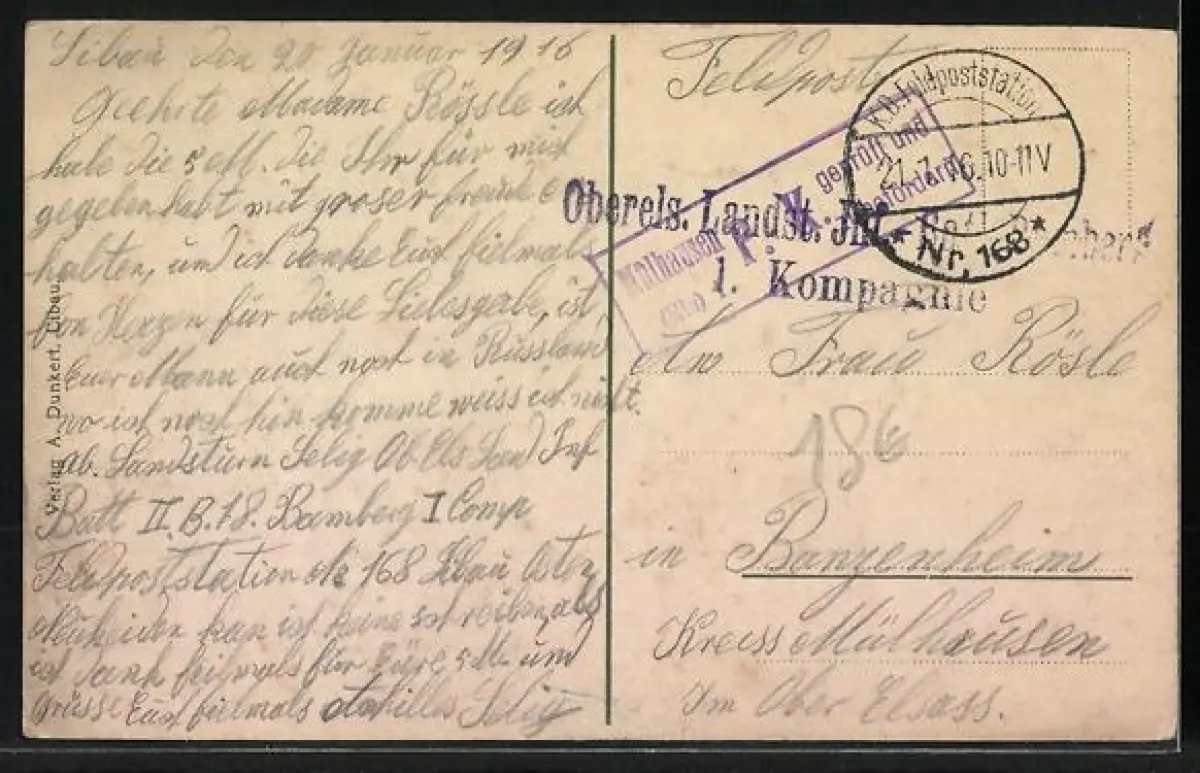 Libau den 20 Januar 1916
Geehrte Madame Rössle ich
habe die 5 M. die Ihr für mich
gegeben habt mit groser freude e
halten, und ich danke Euch fielmals
fon Herzen für diese Liebesgabe, ist
Euer Mann auch noch in Russland
wo ich noch hin komme weiss ich nicht.
ab. Landsturm Selig Ob Els Land Inf
Batt II. B. 18. Bamberg I Comp
Feldpoststation No 168 Libau Osten
kan ich keine schreiben, als
ich dank fielmals für Eure 5 M. und
Grüsse Euch fielmals Achilles Selig
Verlag A. Dunkert, Libau.
Feldpost
K.D. Feldpoststation
21.1.16.10-11V
* Nr. 168 *
Mülhausen P. K. geprüft und
zu befördern
Oberels. Landst. Inf.
1. Kompagnie
An Frau Rösle
186
in Banzenheim
Kreiss Mülhausen
Im Ober Elsass.